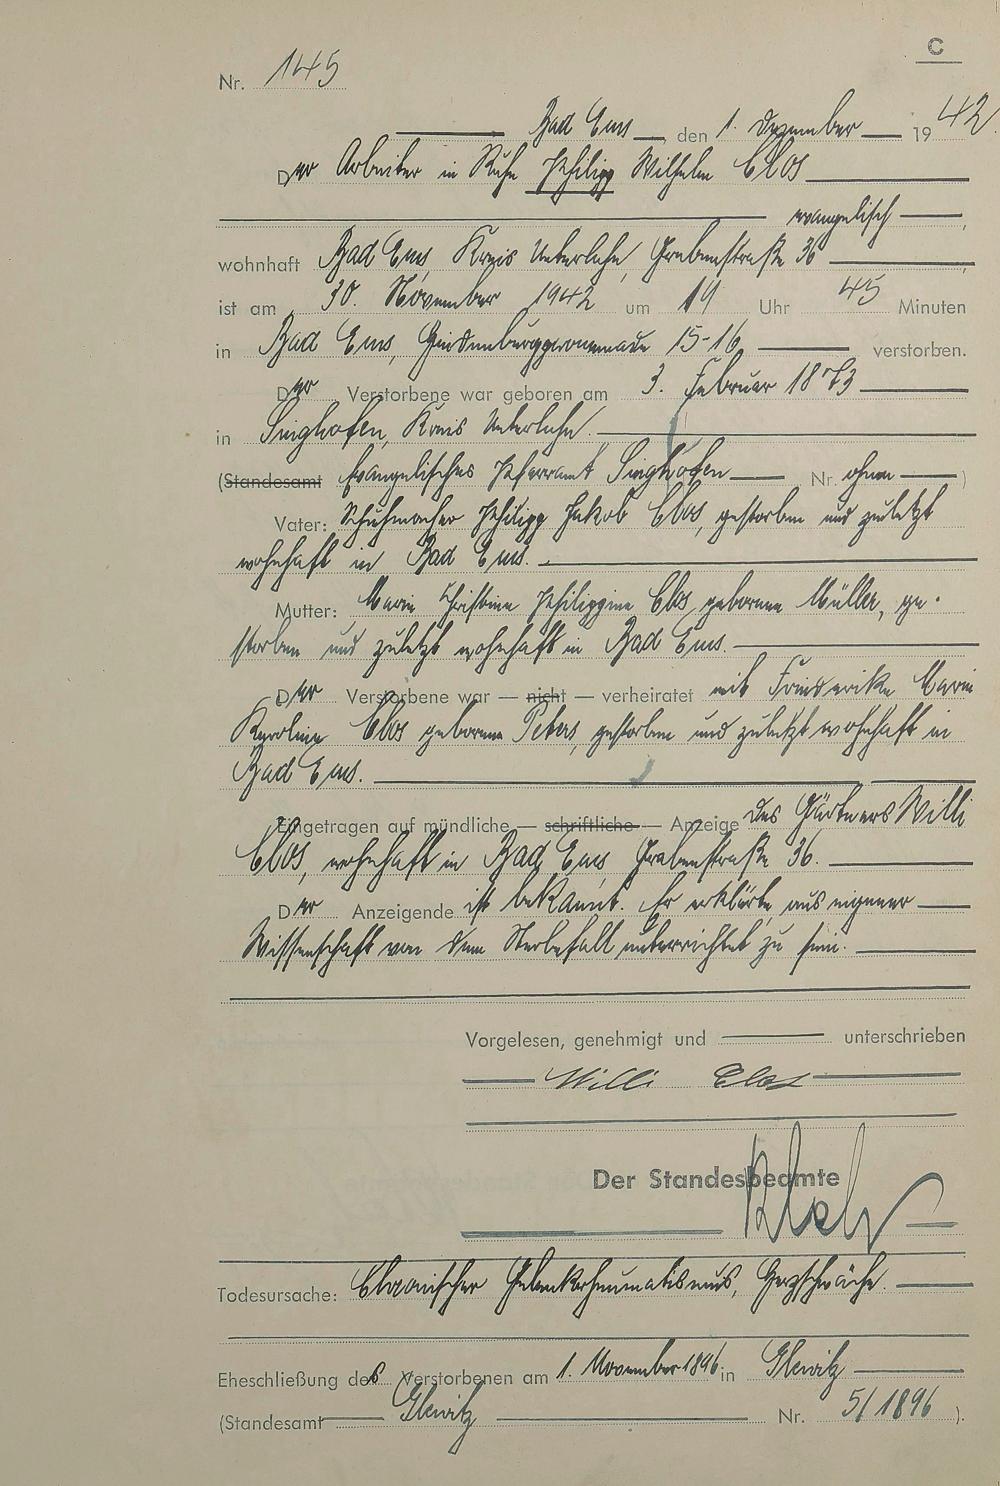 C
Nr. 145
Bad Ems, den 1. Dezember 1942
Der Arbeiter in Ruhe Philipp Wilhelm Clos
evangelisch,
wohnhaft Bad Ems, Kreis Unterlahn, Grabenstraße 36,
ist am 30. November 1942 um 19 Uhr 45 Minuten
in Bad Ems, Hindenburgpromenade 15-16 verstorben.
Der Verstorbene war geboren am 3. Februar 1873
in Singhofen, Kreis Unterlahn.
(Standesamt Evangelisches Pfarramt Singhofen Nr. ohne)
Vater: Schuhmacher Philipp Jakob Clos, gestorben und zuletzt
wohnhaft in Bad Ems.
Mutter: Marie Christine Philippine Clos geborene Müller, ge-
storben und zuletzt wohnhaft in Bad Ems.
Der Verstorbene war — nicht — verheiratet mit Friederike Marie
Karoline Clos geborene Peters, gestorben und zuletzt wohnhaft in
Bad Ems.
Eingetragen auf mündliche — schriftliche — Anzeige des Gärtners Willi
Clos, wohnhaft in Bad Ems, Grabenstraße 36.
Der Anzeigende ist bekannt. Er erklärte, aus eigener
Wissenschaft von dem Sterbefall unterrichtet zu sein.
Vorgelesen, genehmigt und unterschrieben
Willi Clos
Der Standesbeamte
Todesursache: Chronischer Gelenkrheumatismus, Herzschwäche.
Eheschließung des Verstorbenen am 1. November 1896 in
(Standesamt Nr. 5/1896).